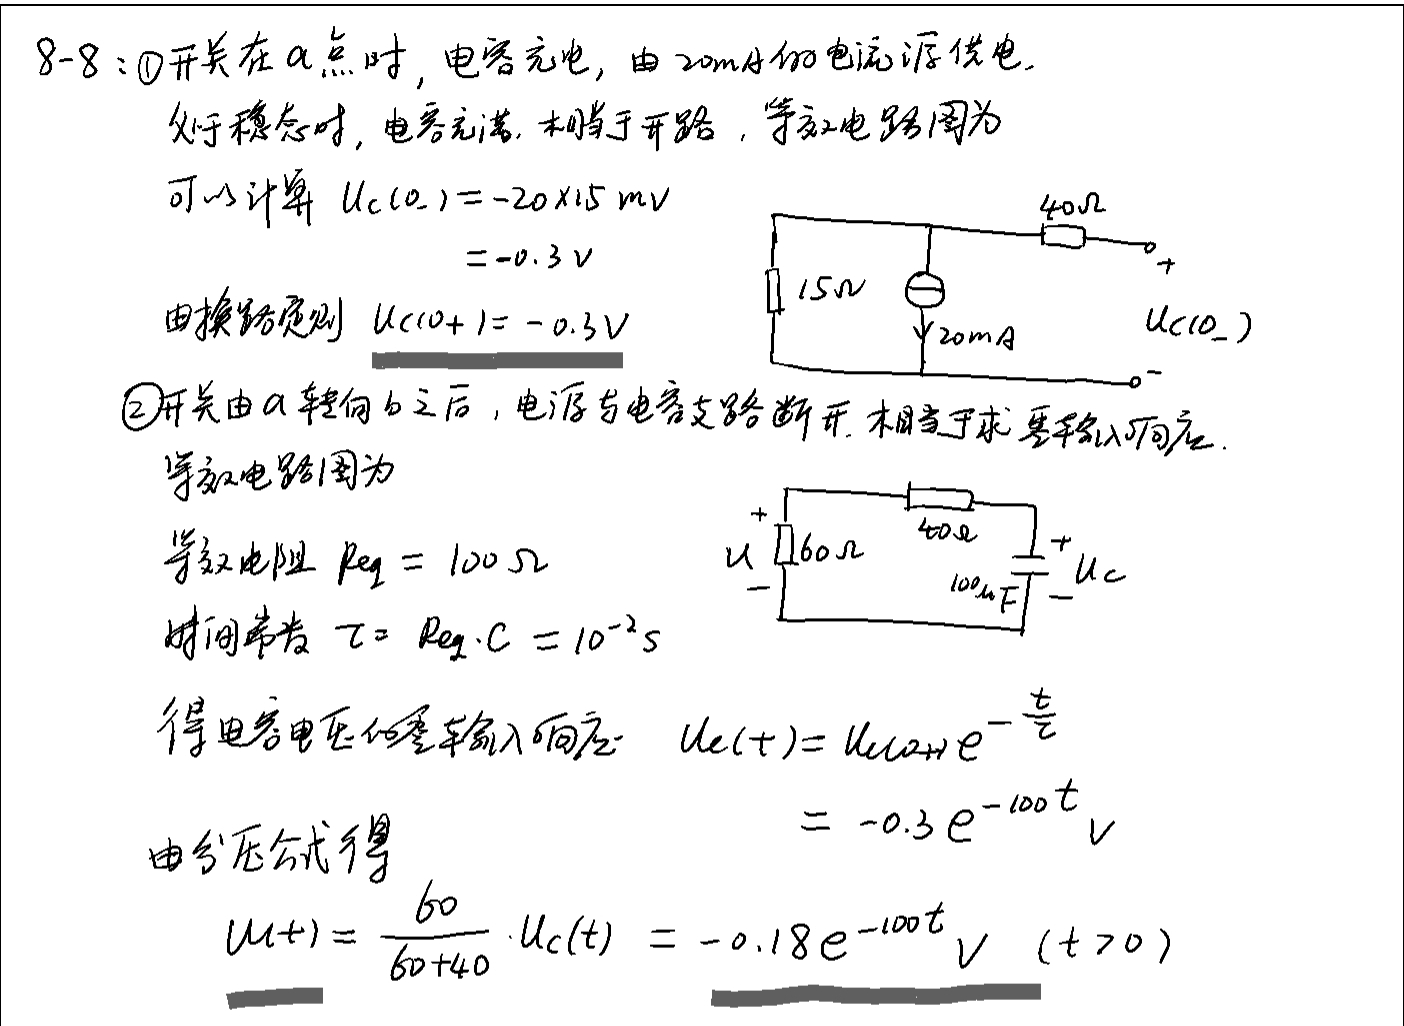 8-8：①开关在a点时，电容充电，由20mA的电流源供电.
处于稳态时，电容充满.相当于开路，等效电路图为
可以计算 Uc(0_)=-20×15 mV
=-0.3V
由换路定则 Uc(0+)=-0.3V
40Ω
15Ω
20mA
+
Uc(0_)
-
②开关由a转向b之后，电源与电容支路断开.相当于求零输入响应.
等效电路图为
+
U
-
60Ω
40Ω
100μF
+
Uc
-
等效电阻 Req = 100Ω
时间常数 τ= Req·C =10⁻²s
得电容电压的零输入响应 Uc(t)=Uc(0+)e^{-t/τ}
= -0.3e^{-100t} V
由分压公式得
U(t) = 60/(60+40) · Uc(t) = -0.18e^{-100t} V (t>0)